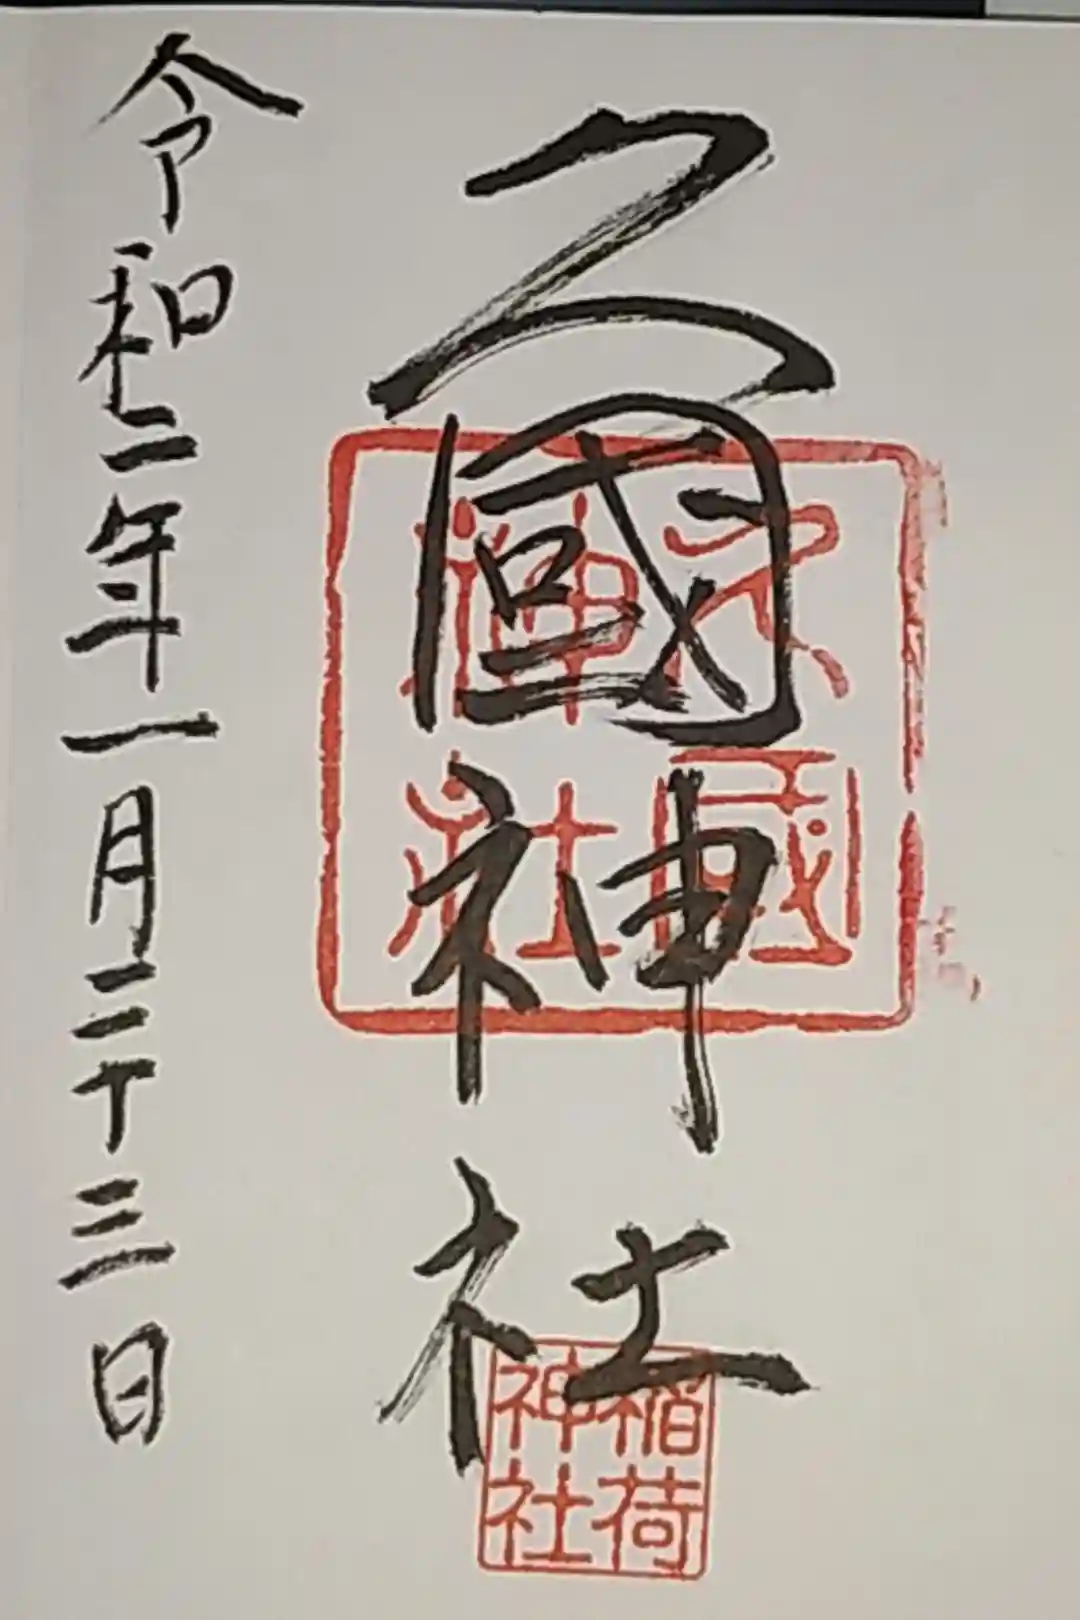 久國神社
久國神社
稲荷神社
令和二年一月二十三日